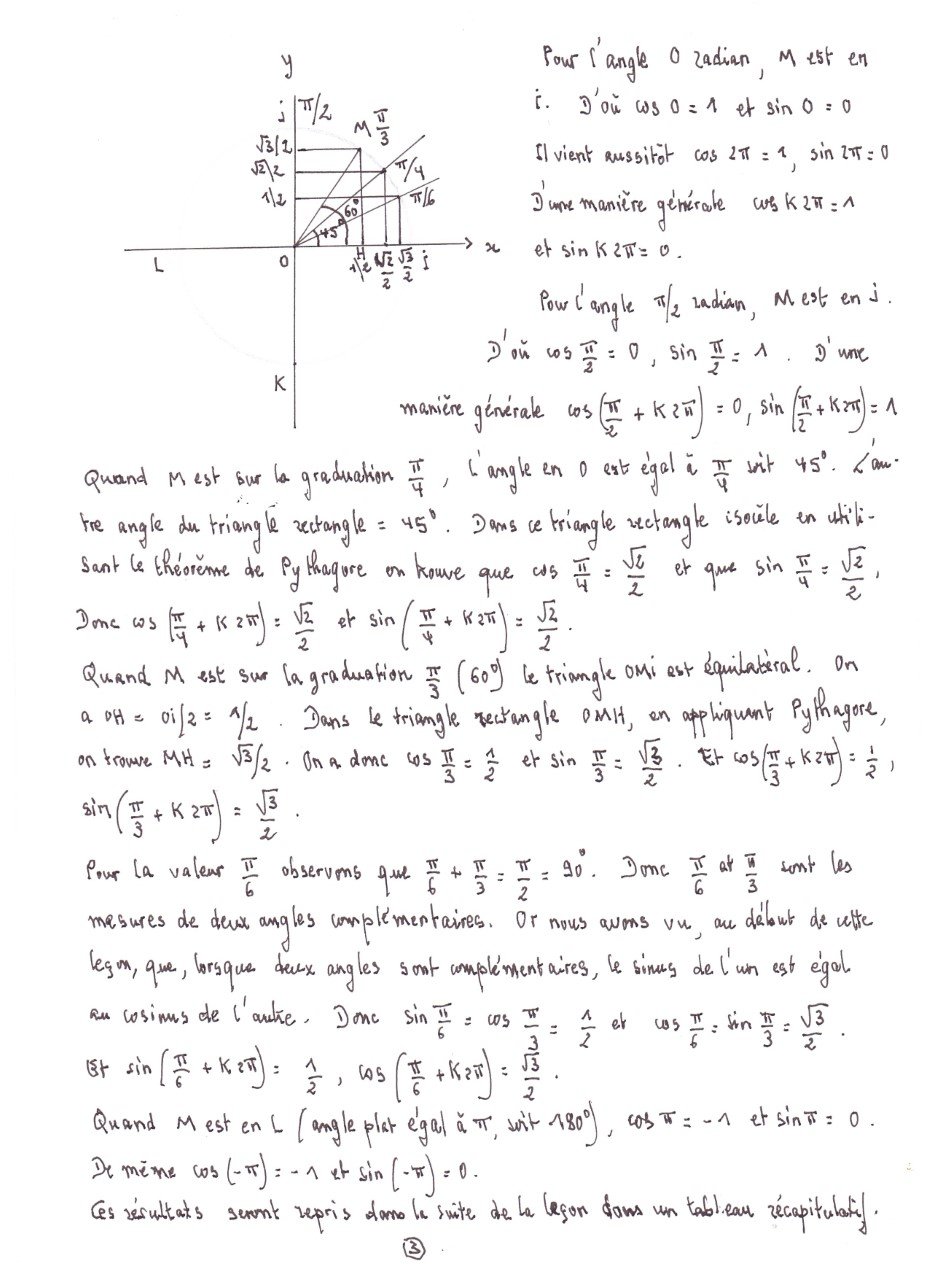 y
j π/2
M π/3
√3/2
√2/2
π/4
1/2
π/6
60°
45°
x
L
O
H
1/2 √2/2 √3/2 i
K
Pour l'angle 0 radian, M est en
i. D'où cos 0 = 1 et sin 0 = 0
Il vient aussitôt cos 2π = 1, sin 2π = 0
D'une manière générale cos K2π = 1
et sin K2π = 0.
Pour l'angle π/2 radian, M est en j.
D'où cos π/2 = 0, sin π/2 = 1. D'une
manière générale cos(π/2 + K2π) = 0, sin(π/2 + K2π) = 1
Quand M est sur la graduation π/4, l'angle en O est égal à π/4 soit 45°. L'au-
tre angle du triangle rectangle = 45°. Dans ce triangle rectangle isocèle en utili-
sant le théorème de Pythagore on trouve que cos π/4 = √2/2 et que sin π/4 = √2/2,
Donc cos(π/4 + K2π) = √2/2 et sin(π/4 + K2π) = √2/2.
Quand M est sur la graduation π/3 (60°) le triangle OMi est équilatéral. On
a OH = Oi/2 = 1/2. Dans le triangle rectangle OMH, en appliquant Pythagore,
on trouve MH = √3/2. On a donc cos π/3 = 1/2 et sin π/3 = √3/2. Et cos(π/3 + K2π) = 1/2,
sin(π/3 + K2π) = √3/2.
Pour la valeur π/6 observons que π/6 + π/3 = π/2 = 90°. Donc π/6 et π/3 sont les
mesures de deux angles complémentaires. Or nous avons vu, au début de cette
leçon, que, lorsque deux angles sont complémentaires, le sinus de l'un est égal
au cosinus de l'autre. Donc sin π/6 = cos π/3 = 1/2 et cos π/6 = sin π/3 = √3/2.
Et sin(π/6 + K2π) = 1/2, cos(π/6 + K2π) = √3/2.
Quand M est en L (angle plat égal à π, soit 180°), cos π = -1 et sin π = 0.
De même cos(-π) = -1 et sin(-π) = 0.
Ces résultats seront repris dans la suite de la leçon dans un tableau récapitulatif.
3